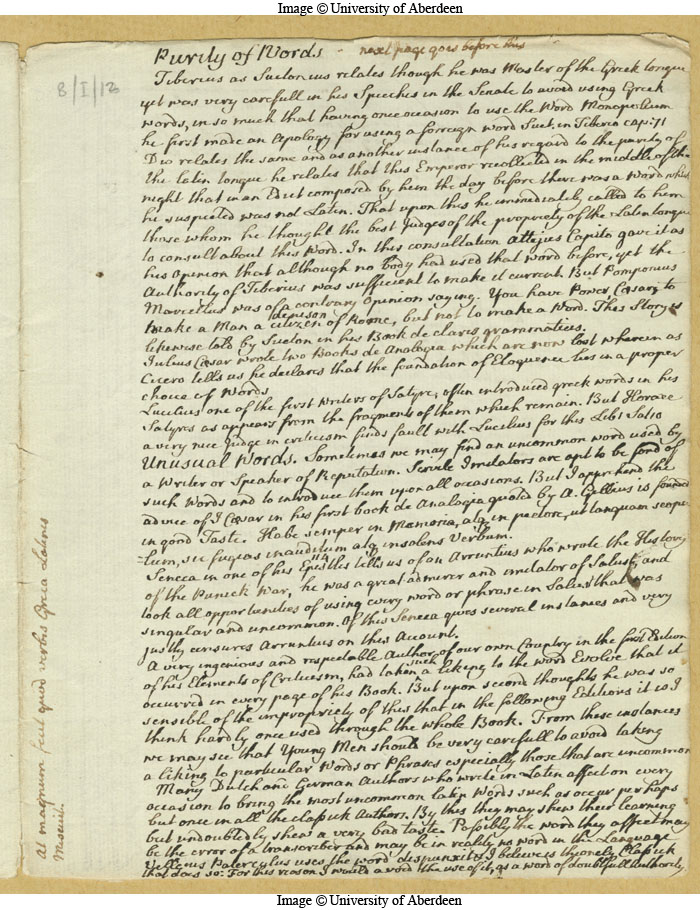 Image © University of Aberdeen
8/I/13
Purity of Words - next page goes before this
Tiberius as Suetonius relates though he was Master of the Greek tongue
yet was very carefull in his Speeches in the Senate to avoid using Greek
words, in so much that having once occasion to use the Word Monopolium
he first made an Apology for using a forreign word Suet. in Tiberio cap. 71
Dio relates the same and as another instance of his regard to the purity of
the latin tongue he relates that this Emperor recollected in the middle of the
night that in an Edict composed by him the day before there was a Word which
he suspected was not Latin. That upon this he immediately called to him
those whom he thought the best Judges of the propriety of the Laten tongue
to consult about this Word. In this consultation Attejus Capito gave it as
his Opinion that although no body had used that word before, yet the
Authority of Tiberius was sufficient to make it current. But Pomponius
Marcellus was of a contrary Opinion saying. You have Power Cæsar to
make a Man a citizen of Rome, but not to make a Word. This Story is
likewise told by Sueton in his Book de claris grammaticis.
Julius Cæsar wrote two Books de Analogia which are now lost wherein as
Cicero tells us he declares that the foundation of Eloquence lies in a proper
choice of Words
Lucilius one of the first writers of Satyre, often introduced greek words in his
Satyres as appears from the fragments of them which remain. But Horace
a very nice Judge in criticism finds fault with Lucilius for this Lib 1 Sat 10
Unusual Words. Sometimes we may find an uncommon word used by
a Writer or Speaker of Reputation. Servile Imitators are apt to be fond of
such Words and to introduce them upon all occasions. But I apprehend the
advice of J Cæsar in his first book de Analogia quoted by A. Gellius is founded
in good Taste. Habe semper in Memoria, atq in pectore, ut tanquam scopu
=lum, sic fugias inauditum atq insolens Verbum.
Seneca in one of his Epistles 114 tells us of an Arruntius who wrote the History
of the Punick War, he was a great admirer and imitator of Salust, and
took all opportunities of using every word or phrase in Salust that was
singular and uncommon. Of this Seneca gives several instances and very
justly censures Arruntius on this Acount.
A very ingenious and respectable Author of our own Country in the first Edition
of his Elements of Criticism, had taken such a liking to the word Evolve that it
occurred in every page of his Book. But upon second thoughts he was so
sensible of the impropriety of this that in the following Editions it is I
think hardly once used through the whole Book. From these instances
we may see that Young Men should be very carefull to avoid taking
a liking to particular Words or Phrases especially those that are uncommon
Many Dutch and German Authors who write in Latin affect on every
occasion to bring the most uncommon latin Words such as occur perhaps
but once in all the classick Authors. By this they may shew their learning
but undoubtedly shew a very bad taste. Possibly the word they affect may
be the error of a transcriber and may be in reality no word in the Language
Velleius Paterculus uses the word dispunxit & I believe is the only Classick
that does so. For this reason I would avoid the use of it, as a word of doubtfull Authority
at magnum fecit quod verbis Græca Latinis
Miscuit.
Image © University of Aberdeen